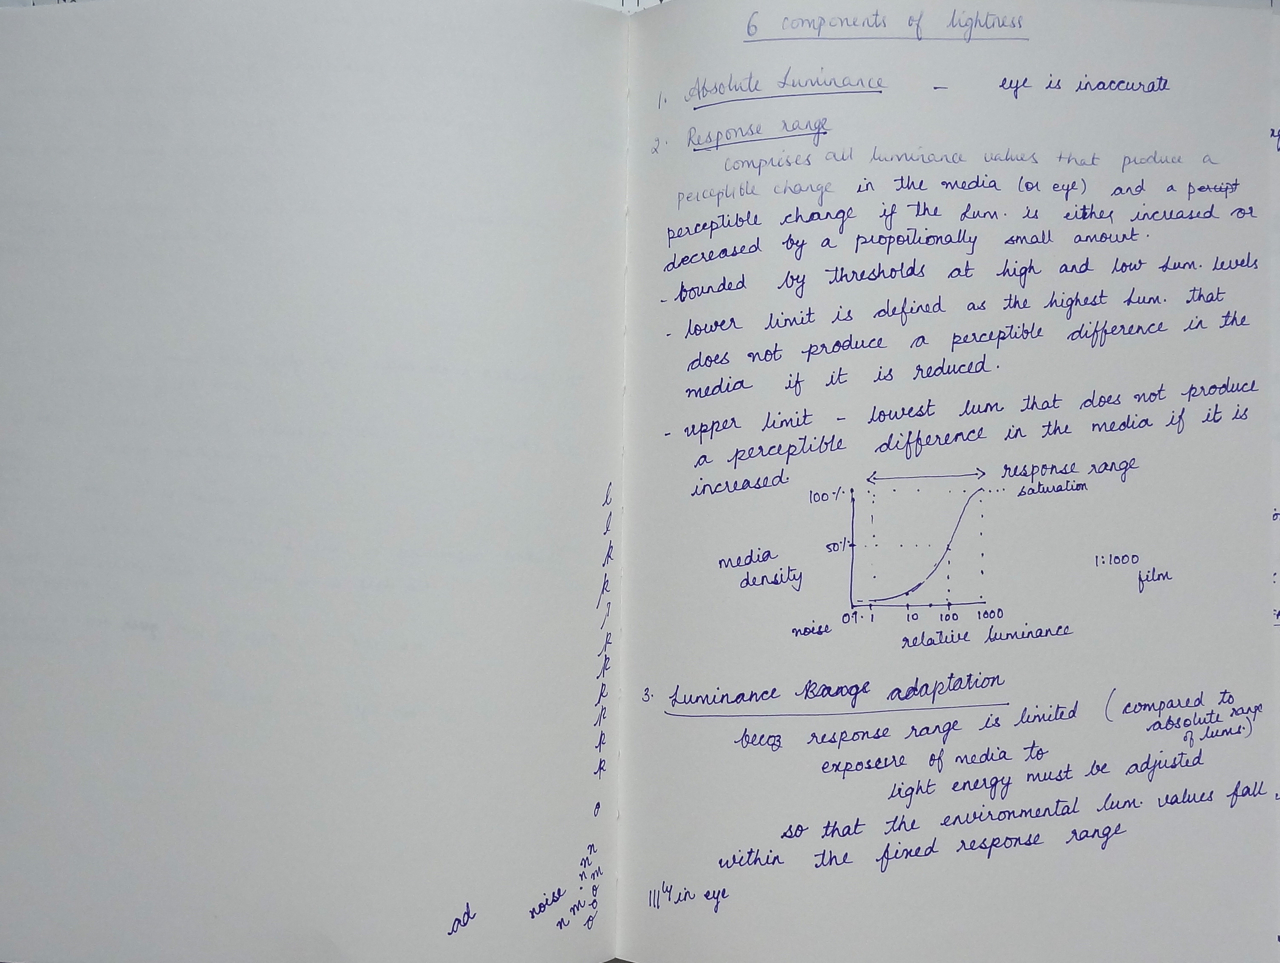 6 components of lightness
1. Absolute Luminance – eye is inaccurate
2. Response range
comprises all luminance values that produce a
perceptible change in the media (or eye) and a percipt
perceptible change if the Lum. is either increased or
decreased by a proportionally small amount.
- bounded by thresholds at high and low Lum. levels
- lower limit is defined as the highest Lum. that
does not produce a perceptible difference in the
media if it is reduced.
- upper limit – lowest lum that does not produce
a perceptible difference in the media if it is
increased.
response range
100% saturation
50%
media
density
1:1000
film
noise 0% 1 10 100 1000
relative luminance
3. Luminance Range adaptation
becoz response range is limited (compared to
absolute range
of lums.)
exposure of media to
light energy must be adjusted
so that the environmental lum. values fall
within the fixed response range
|||ly in eye
l
l
k
k
k
k
k
k
k
k
o
n
n
n m
noise o
n m o
ad o